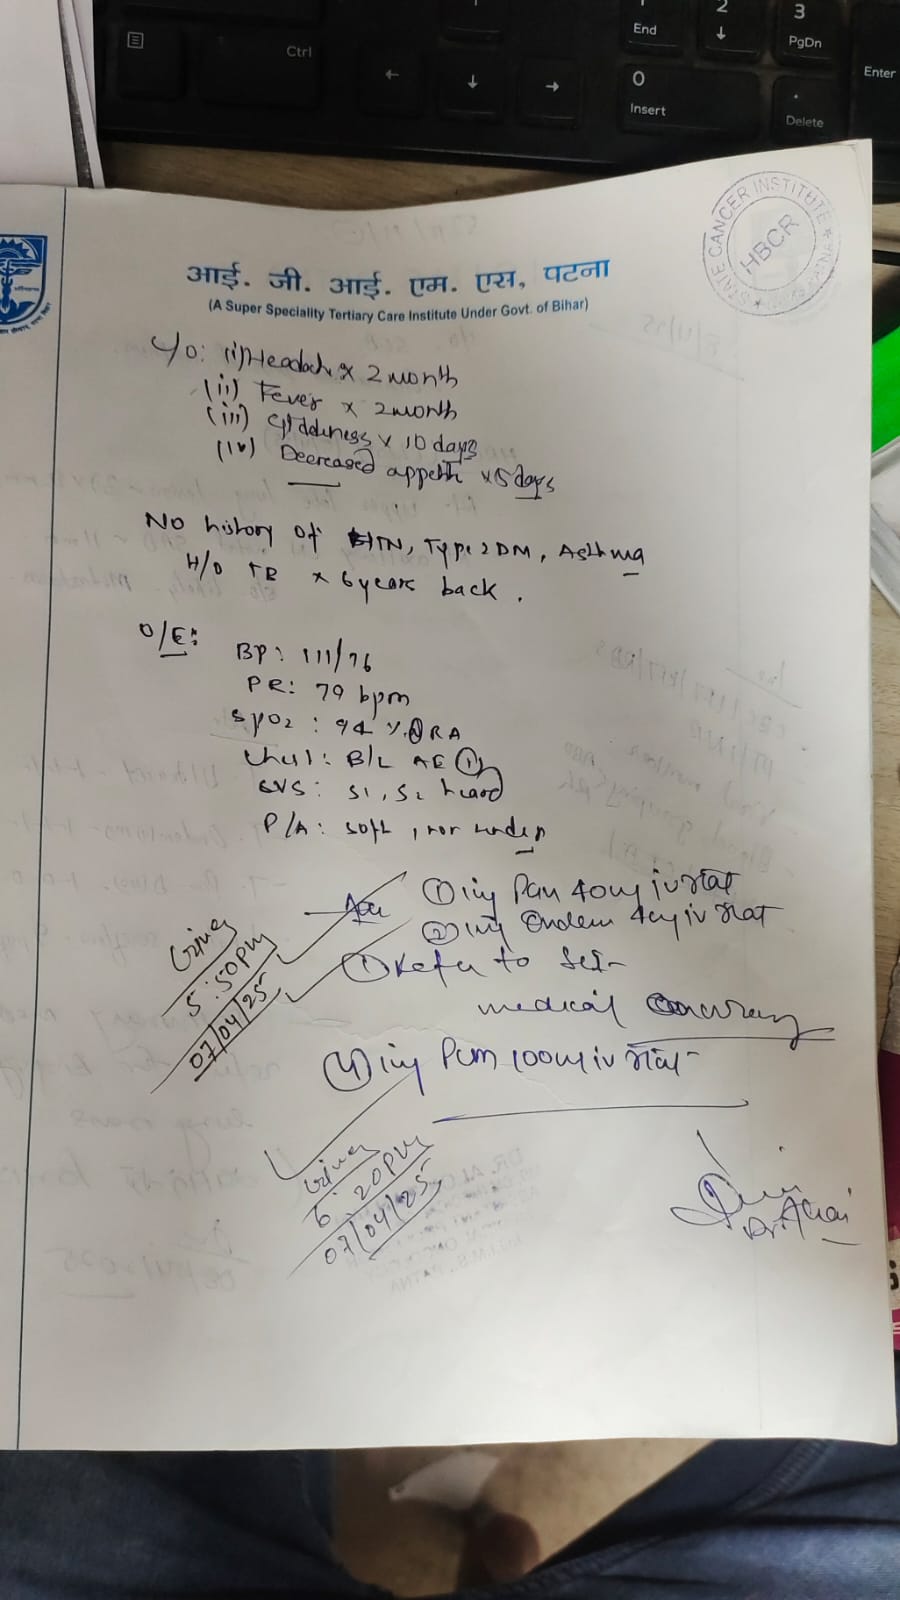 Ctrl
1
End
2
3
PgDn
0
Insert
.
Delete
Enter
STATE CANCER INSTITUTE
HBCR
आई. जी. आई. एम. एस, पटना
(A Super Speciality Tertiary Care Institute Under Govt. of Bihar)
C/O: (i) Headach x 2 month
(ii) Fever x 2 month
(iii) Giddiness x 10 days
(iv) Decreased appetite x 5 days
No history of HTN, Type 2 DM, Asthma
H/O TB x 6 years back.
O/E:
BP: 111/76
PR: 79 bpm
SpO2: 94 % @ RA
Chest: B/L AE
CVS: S1, S2 heard
P/A: soft, non tender
① inj Pan 40mg iv stat
② inj Ondem 4mg iv stat
Refer to SCI-
medical
④ inj PCM 100mg iv stat
Given
5:50PM
07/04/25
Given
6:20PM
07/04/25